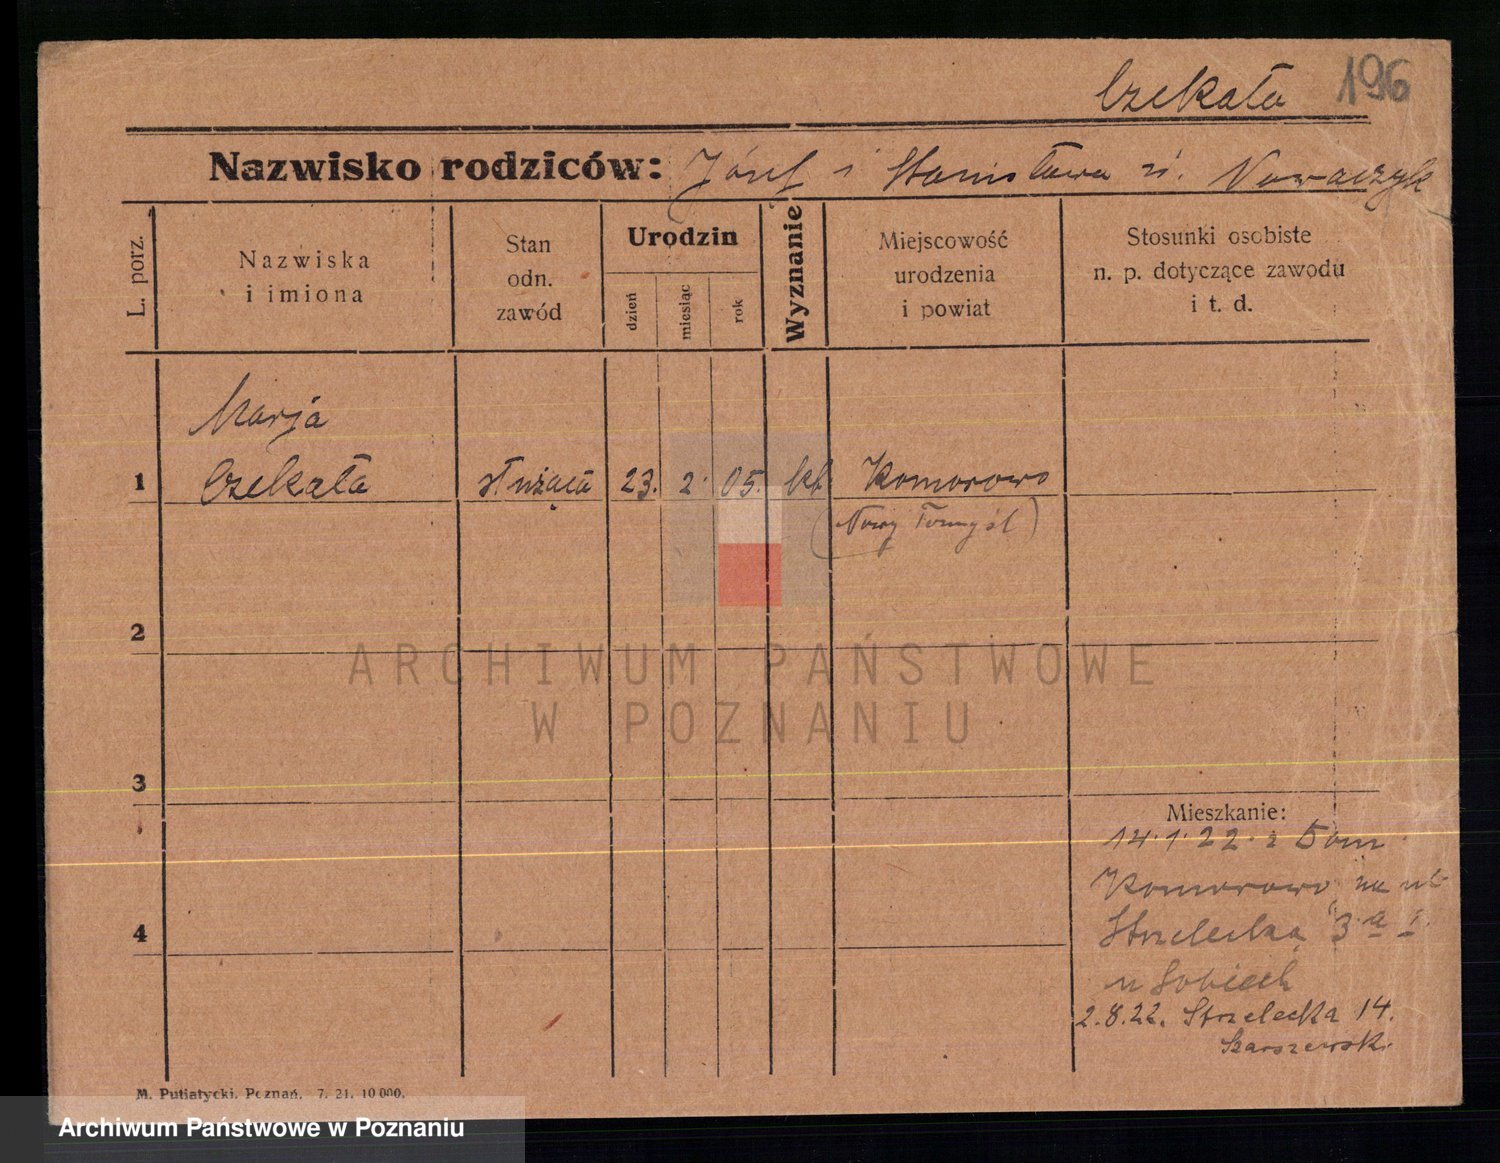 Czekała 196
Nazwisko rodziców: Józef i Stanisława ur. Nowaczyk
L. porz.
Nazwiska
i imiona
Stan
odn.
zawód
Urodzin
dzień
miesiąc
rok
Wyznanie
Miejscowość
urodzenia
i powiat
Stosunki osobiste
n. p. dotyczące zawodu
i t. d.
Marja
1 Czekała służąca 23. 2. 05. kt. Komorowo
(Nowy Tomyśl)
2
ARCHIWUM PAŃSTWOWE
W POZNANIU
3
Mieszkanie:
14.1.22. z Dom
Komorowo na ul
4 Strzelecką 3.a I.
u Sobiech
2.8.22. Strzelecka 14.
M. Putiatycki, Poznań. 7. 21. 10 000.
Archiwum Państwowe w Poznaniu